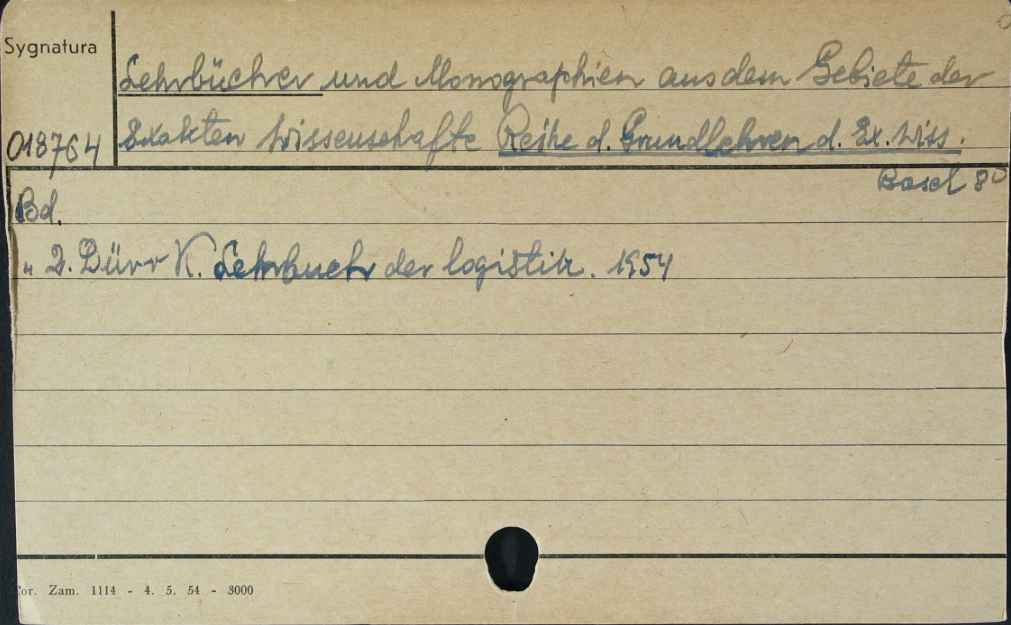 Sygnatura
Lehrbücher und Monographien aus dem Gebiete der
018764 Exakten Wissenschafte Reihe d. Grundlehren d. Ex. Wiss.
Basel 8°
Bd.
" 2. Dürr K. Lehrbuch der logistik. 1954
or. Zam. 1114 - 4. 5. 54 - 3000